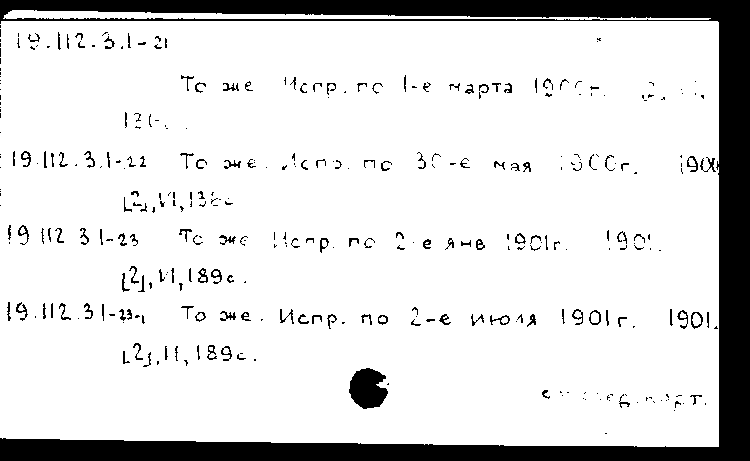 19.112.3.1-21
То же Испр. по 1-е марта 1900г. [2],
19.112.3.1-22 То же. Испр. по 30-е мая 1900г. 1900
[2], VI, 138с
19 112 3 1-23 То же Испр. по 2-е янв 1901г. 1901.
[2], VI, 189с.
19.112.3 1-23-1 То же. Испр. по 2-е июля 1901г. 1901.
[2], II, 189с.
см след. карт.